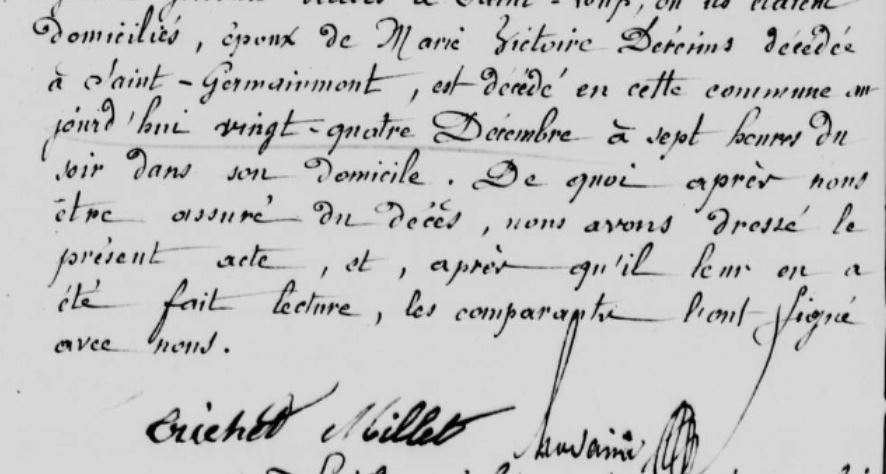 à Saint-Loup, où ils étaient
domiciliés, époux de Marie Victoire décédée
à Saint-Germainmont, est décédé en cette commune au
jourd'hui vingt-quatre Décembre à sept heures du
soir dans son domicile. De quoi après nous
être assuré du décès, nous avons dressé le
présent acte, et, après qu'il leur en a
été fait lecture, les comparants l'ont signé
avec nous.
Trichet Millet